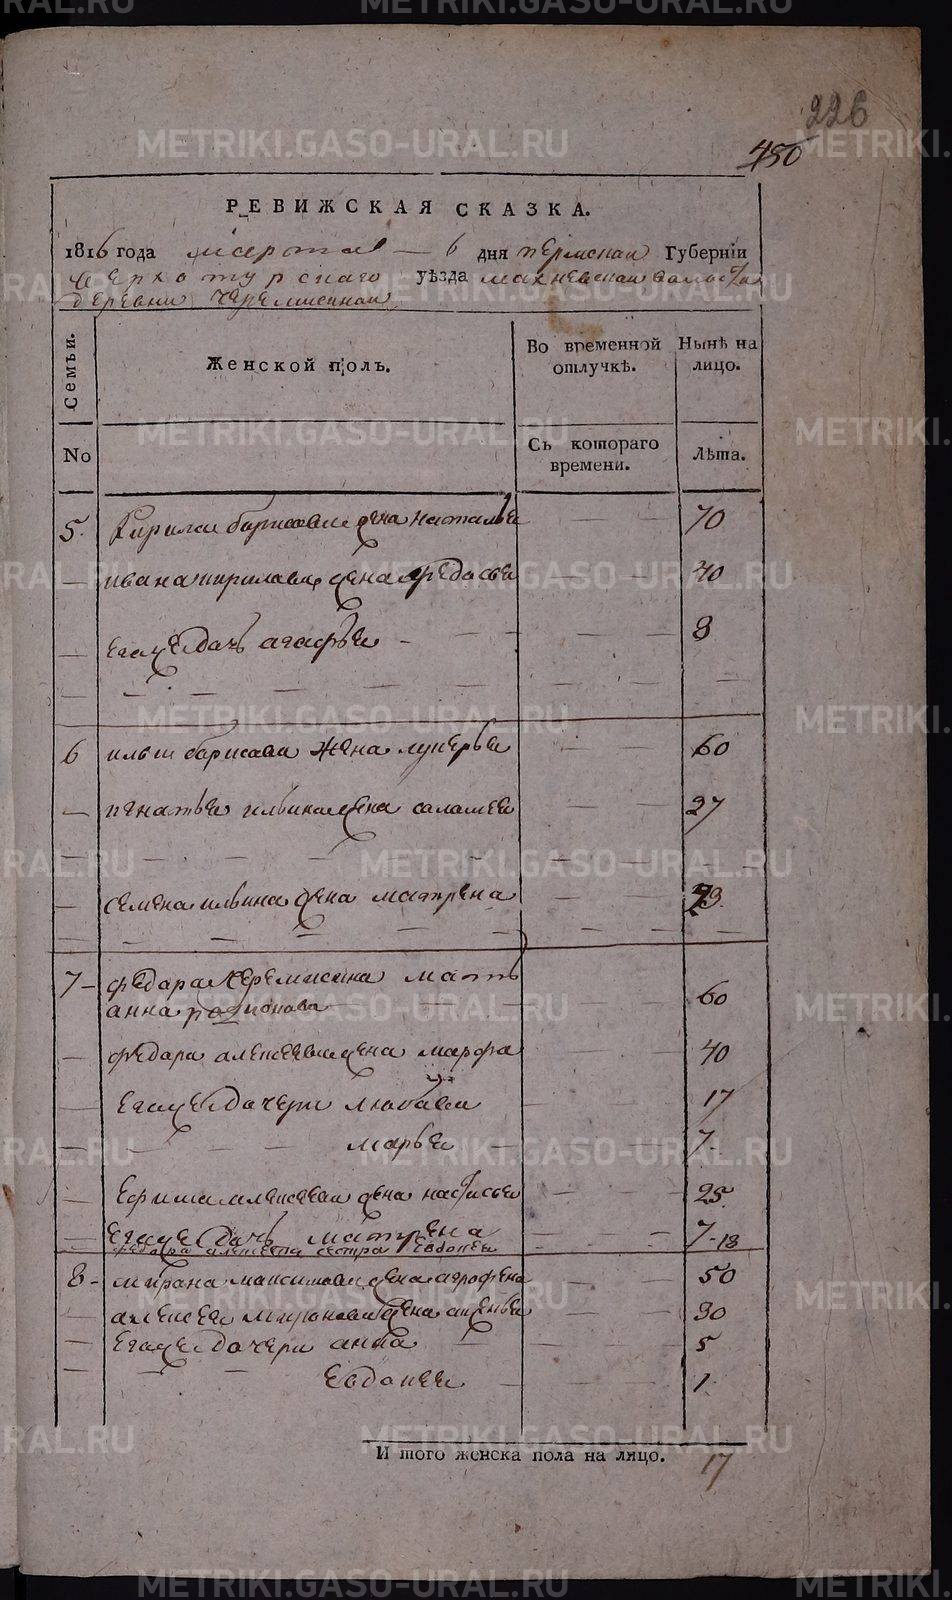 226
450
РЕВИЖСКАЯ СКАЗКА.
1816 года марта 6 дня пермской Губерніи
верхотурскаго уѣзда махневской волости
деревни черемисиной
Семьи. Женской полъ. Во временной отлучкѣ. Нынѣ на лицо.
No Съ котораго времени. Лѣта.
5. Кирила барисова жена наталья 70
ивана кирилава жена федосья 40
егоже дачь агафья 8
6 ильи барисава жена лукерья 60
игнатья ильина жена саламея 27
семена ильина жена матрена
7 федара черемисина мать
анна радионова 60
федара алексеева жена марфа 40
егоже дачери любава 17
марья 7
ефима алексеева жена настасья 25
егоже дачь матрена 7
федара алексеева сестра евдокея 18
8 мирана максимова жена агрофена 50
алексея миронова жена аксенья 30
егоже дачери анна 5
евдокея 1
И того женска пола на лицо. 17
METRIKI.GASO-URAL.RU